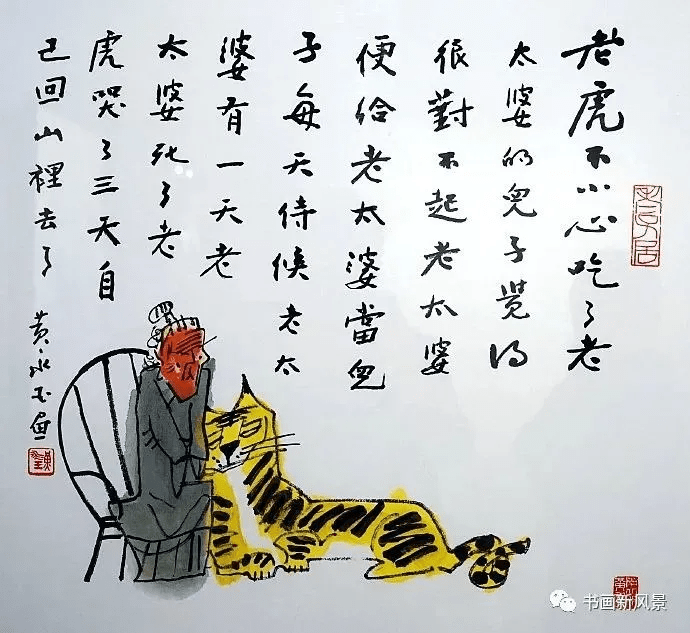 老虎不小心吃了老
太婆的兒子覺得
很對不起老太婆
便給老太婆當兒
子每天侍候老太
婆有一天老
太婆死了老
虎哭了三天自
己回山裡去了
黄永玉画
书画新风景